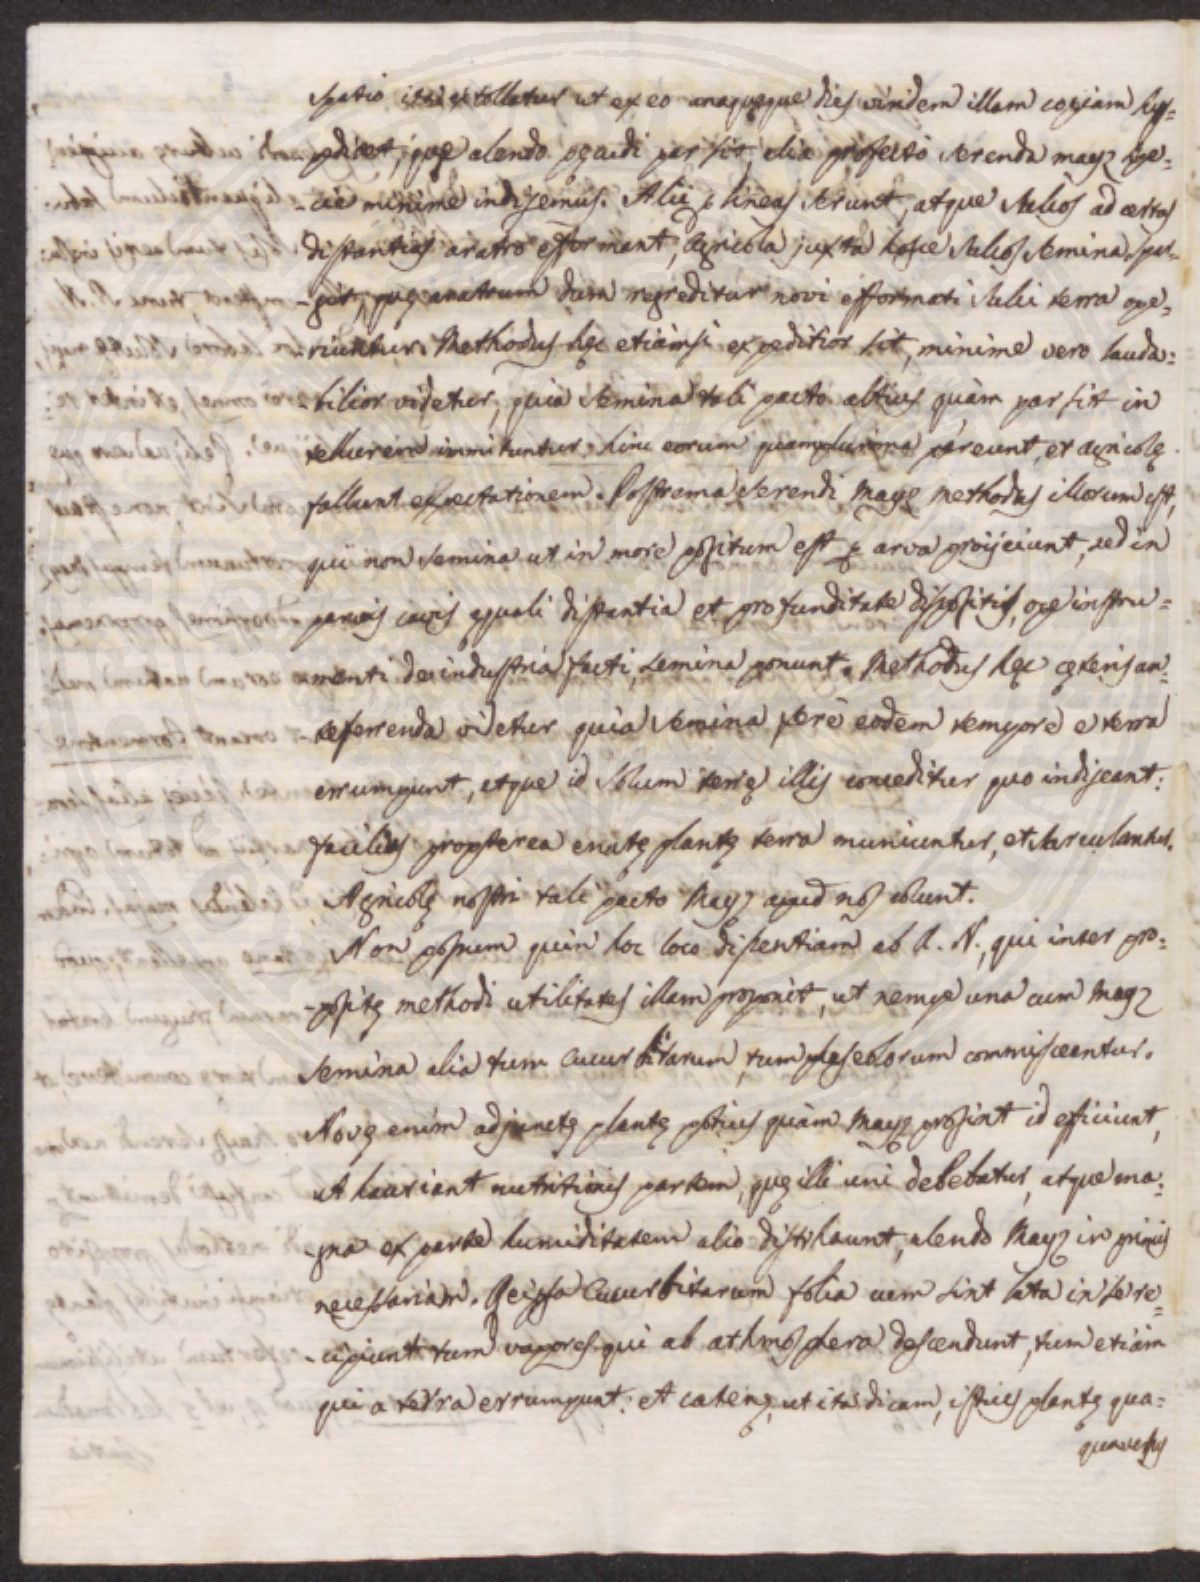 spatio ita extollatur ut ex eo unaquęque dies viridem illam copiam sup=
peditet, quę alendo pęcudi par sit, alia profecto serenda mayz spe=
-cie minime indigemus. Alii p lineas serunt, atque sulcos ad certas
distantias aratro efformant, Agricola juxta hosce sulcos semina spar-
-git, quę aratrum dum regreditur novi efformati sulci terra ope=
-riuntur. Methodus hęc etiamsi expeditior sit, minime vero lauda=
-bilior videtur, quia semina tali pacto altius quàm par sit in
tellurem immituntur, hinc eorum quamplurima pereunt, et agricolę
fallunt expectationem. Postrema serendi Mayz methodus illorum est,
qui non semina ut in more positum est p arva proijciunt, sed in
parvis cavis ęquali distantia et profunditate dispositis, ope instru=
-menti de industria facti, semina ponunt. Methodus hęc cęteris an=
-teferrenda videtur quia semina ferè eodem tempore e terra
errumpunt, atque id solum terrę illis conceditur quo indigeant:
facilius propterea enatę plantę terra muniuntur, et sarculantur.
Agricolę nostri tali pacto Mayz apud nos colunt.
Non possum quin hoc loco dissentiam ab A. N., qui inter pro=
-positę methodi utilitates illam proponit, ut nempe una cum Mayz
semina alia tum Cucurbitarum, tum phaseolorum commisceantur.
Novę enim adjunctę plantę potius quàm Mayz prosint id efficiunt,
ut hauriant nutritionis partem, quę illi uni debebatur, atque ma=
-gna ex parte humiditatem alio distrhaunt, alendo Mayz in primis
necessariam. Reipsa Cucurbitarum folia cum sint lata in se re=
-cipiunt tum vapores qui ab athmosphera descendunt, tum etiam
qui a terra errumpunt: et catenę, ut ita dicam, istius plantę qua=
quaversus